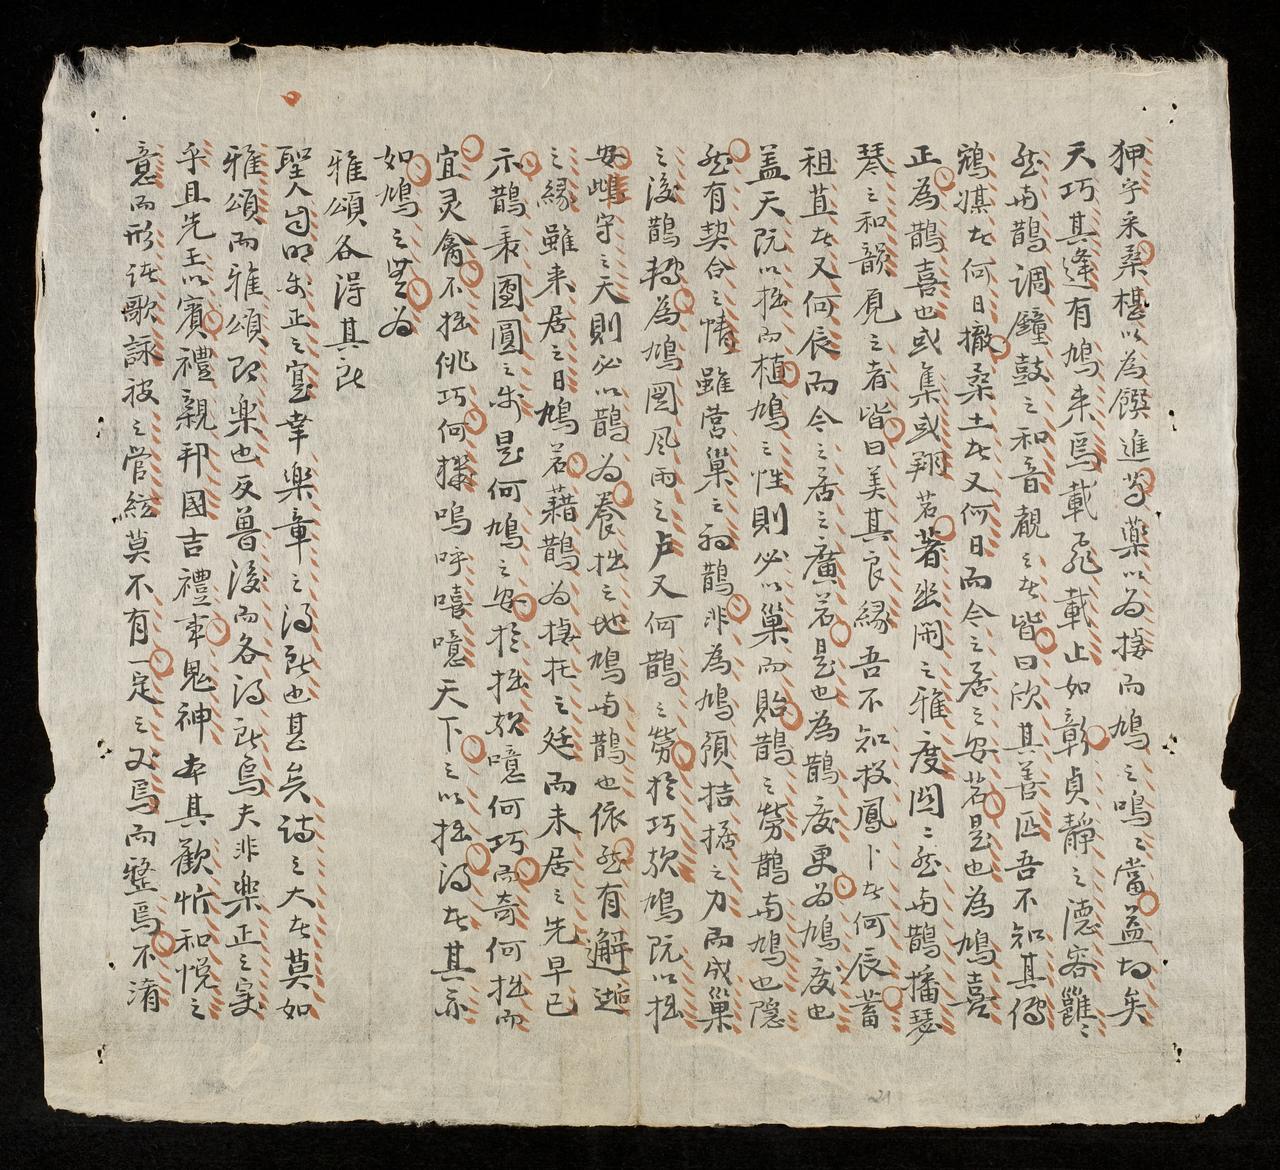 狎守采桑椹以為饌進芍藥以为接而鳩之鳴〻當益切矣
天巧其逢有鳩来焉載飛載止如彰貞靜之德容雝〻
然與鵲調鐘鼓之和音觀之者皆曰欣其善匹吾不知其傳
鴆媒者何日撤桑土者又何日而今之居之安若是也為鳩喜
正為鵲喜也或集或翔若著幽閒之雅度関〻然與鵲播瑟
琴之和韻覓之者皆曰美其良縁吾不知投鳳卜者何辰蓄
祖苴者又何辰而今之居之廣若是也為鵲度更为鳩度也
盖天既以拙而植鳩之性則必以巢而貽鵲之勞鵲與鳩也隱
然有契合之情雖营巢之初鵲非為鳩預拮据之力而成巢
之後鵲轉為鳩圖風雨之卢又何鵲之勞於巧欤鳩既以拙
安雌守之天則必以鵲为養拙之地鳩與鵲也依然有邂逅
之縁雖来居之日鳩若藉鵲为棲托之廷而未居之先早已
示鵲来團圓之 是何鳩之安於拙欤噫何巧而奇何拙而
宜灵禽不拙佻巧何 嗚呼嘻噫天下之以拙得者其亦
如鳩之 为
雅頌各得其所
聖人自明 正之寔幸樂章之得所也甚矣詩之大者莫如
雅頌而雅頌即樂也反魯後而各得所焉夫非樂正之寔
乎且先王以賓禮親邦國吉禮事鬼神本其歡忻和悅之
意而形诸歌詠被之管絃莫不有一定之 焉而整焉不淆